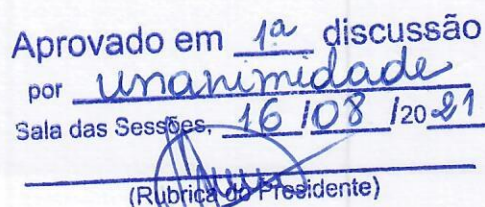 Aprovado em 1ª discussão
por unanimidade
Sala das Sessões, 16 / 08 / 20 21
(Rubrica do Presidente)